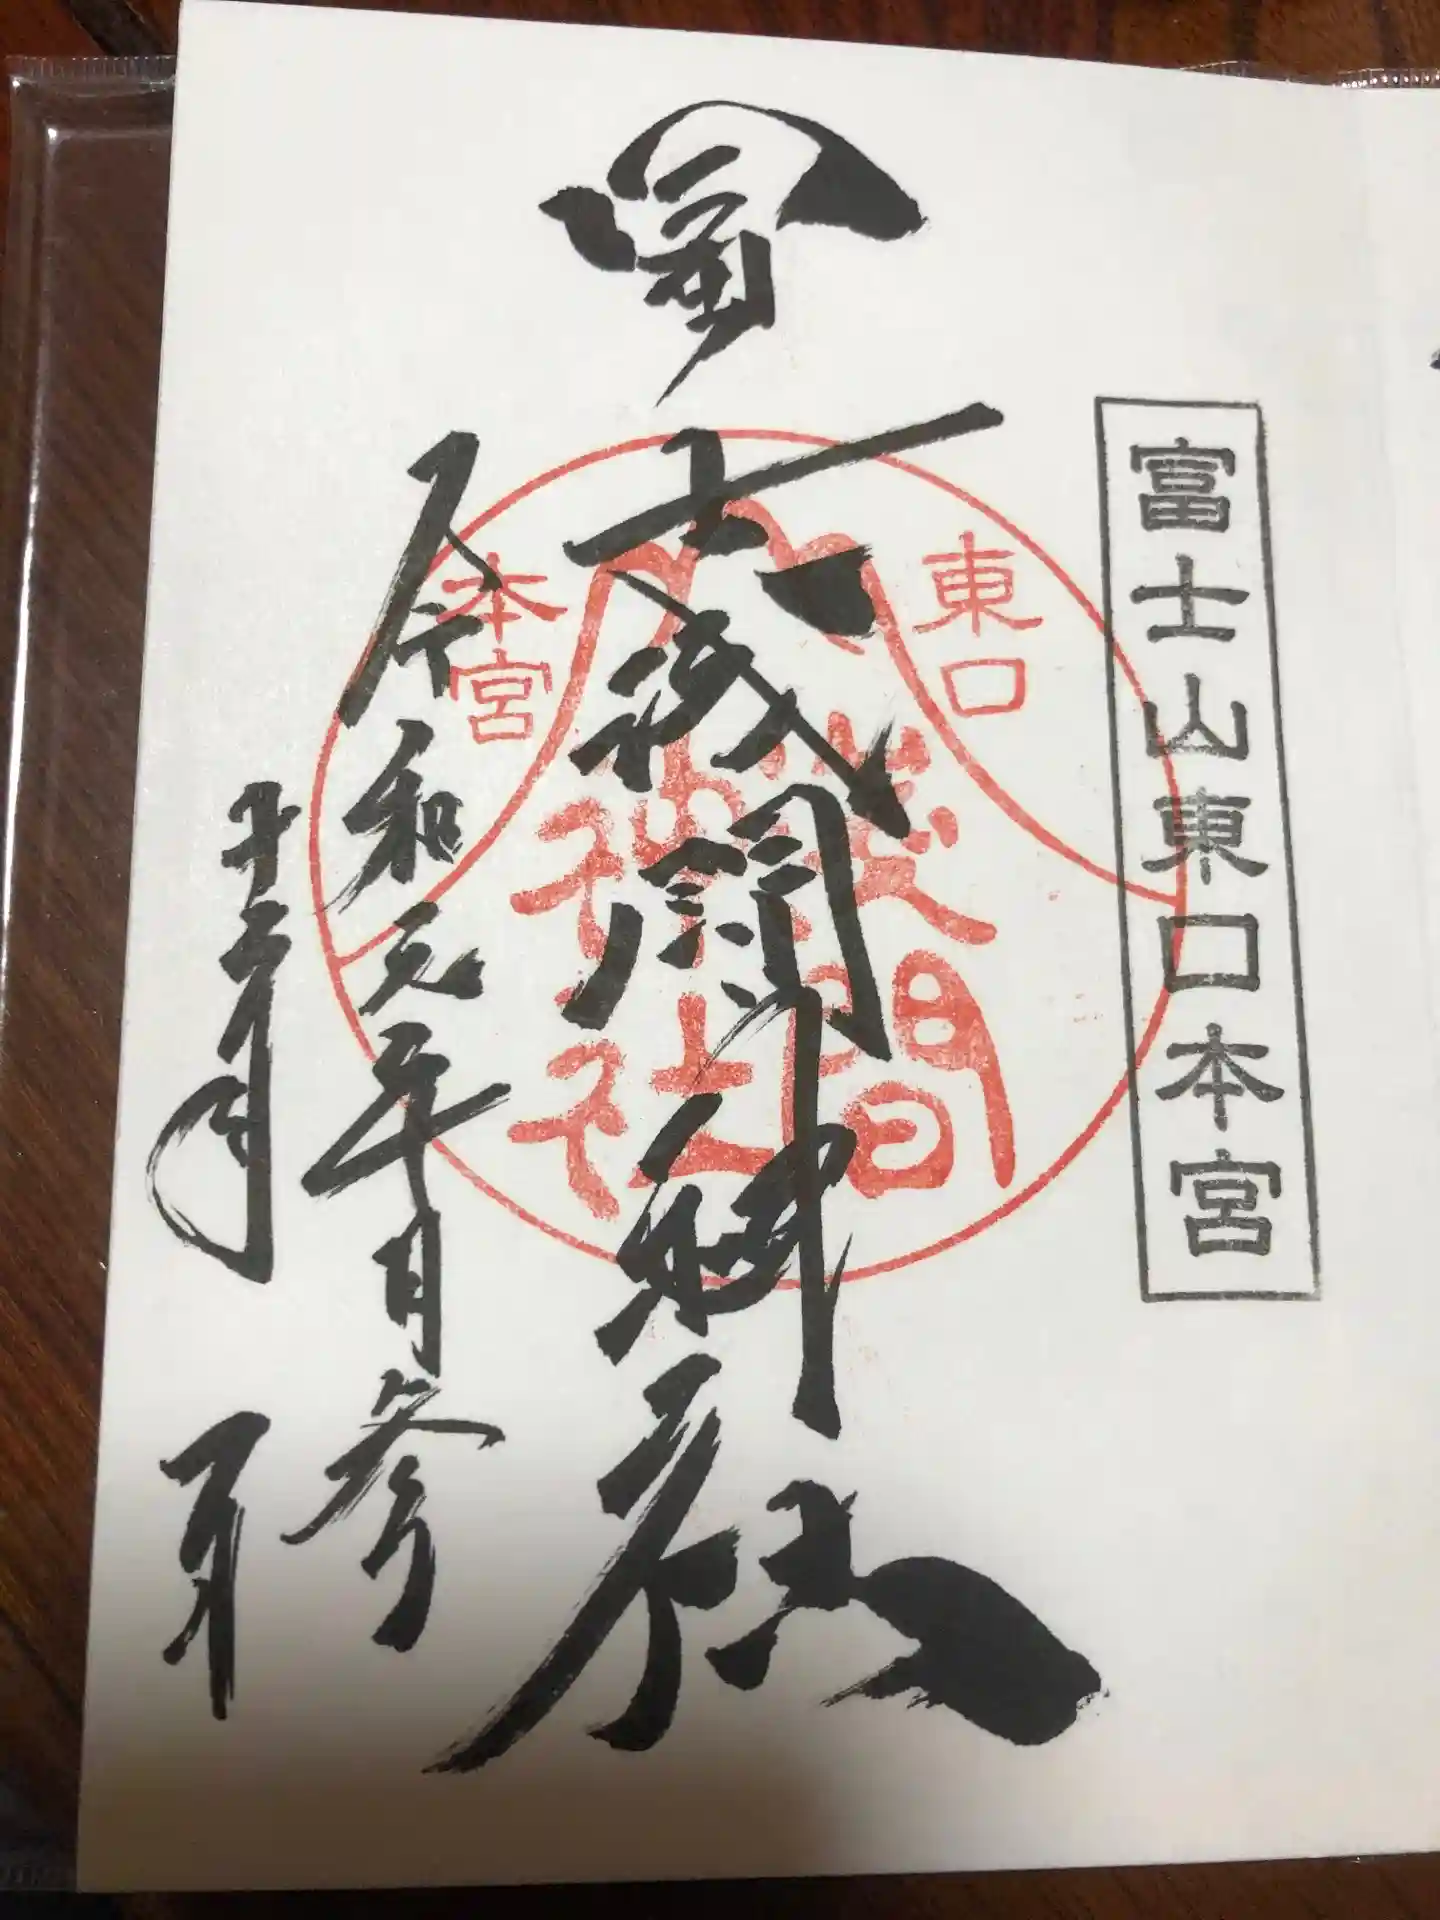 富士山東口本宮
冨士浅間神社
東口
本宮
淺間
神社
令和元年
十二月